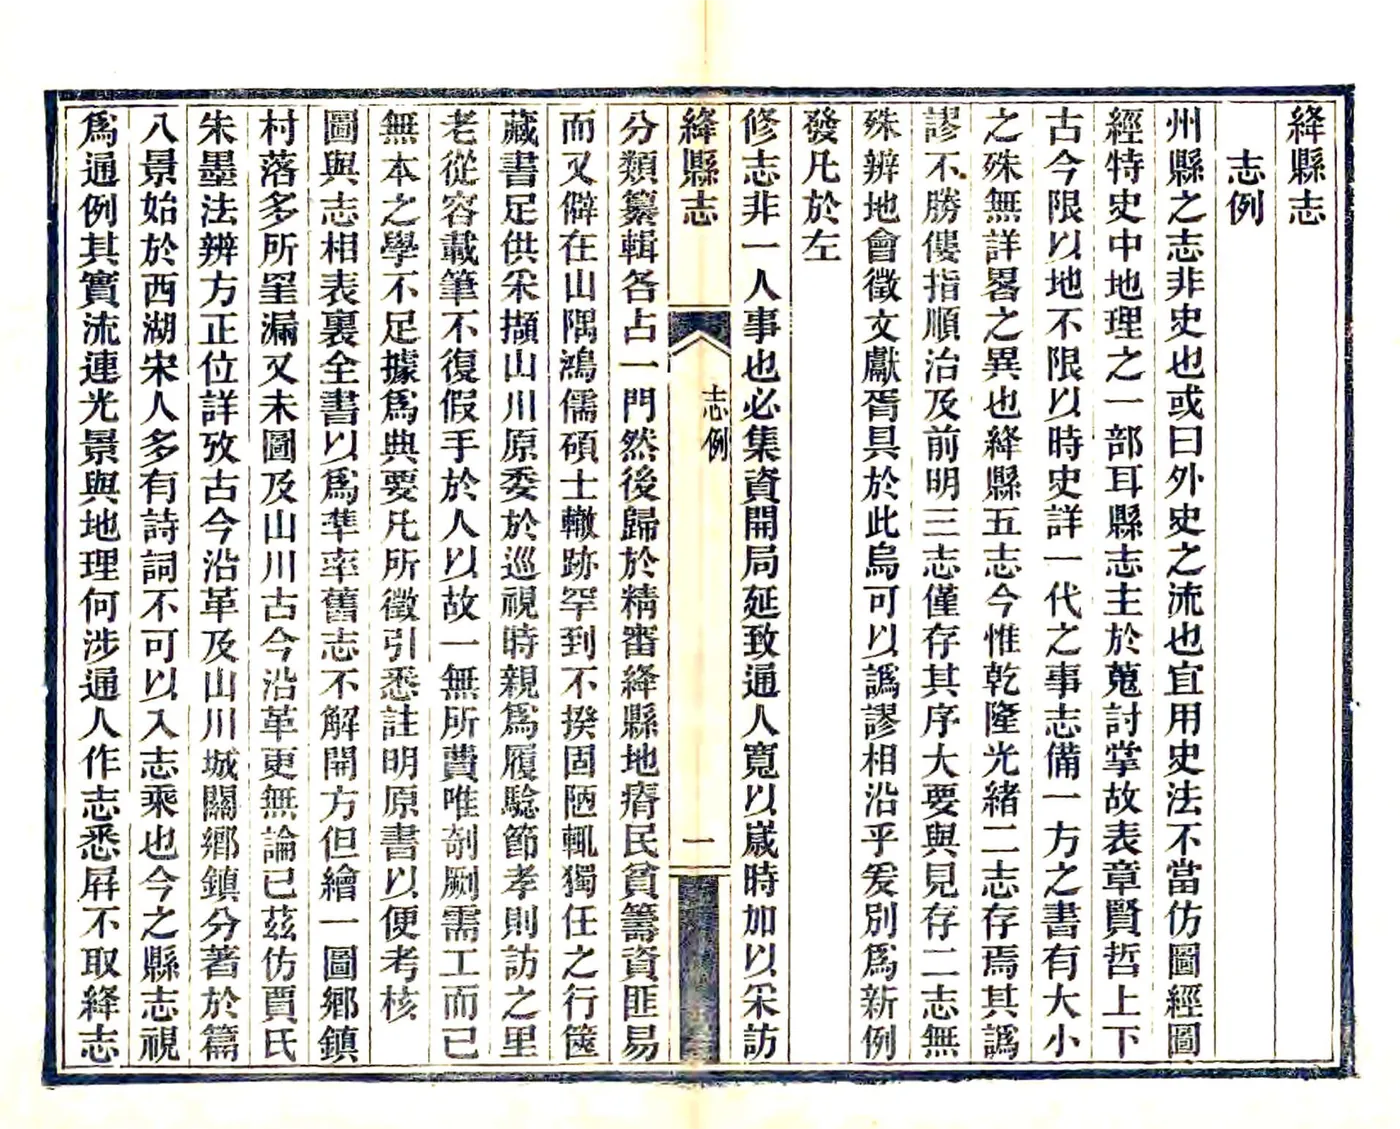 絳縣志
志例
州縣之志非史也或曰外史之流也宜用史法不當仿圖經圖
經特史中地理之一部耳縣志主於蒐討掌故表章賢哲上下
古今限以地不限以時史詳一代之事志備一方之書有大小
之殊無詳畧之異也絳縣五志今惟乾隆光緒二志存焉其譌
謬不勝僂指順治及前明三志僅存其序大要與見存二志無
殊辨地會徵文獻胥具於此烏可以譌謬相沿乎爰別爲新例
發凡於左
修志非一人事也必集資開局延致通人寬以嵗時加以采訪
絳縣志
志例
一
分類纂輯各占一門然後歸於精審絳縣地瘠民貧籌資匪易
而又僻在山隅鴻儒碩士轍跡罕到不揆固陋輒獨任之行篋
藏書足供采擷山川原委於巡視時親爲履騐節孝則訪之里
老從容載筆不復假手於人以故一無所費唯剞劂需工而已
無本之學不足據爲典要凡所徵引悉註明原書以便考核
圖與志相表裏全書以爲準率舊志不解開方但繪一圖鄉鎮
村落多所罣漏又未圖及山川古今沿革更無論已茲仿賈氏
朱墨法辨方正位詳攷古今沿革及山川城關鄉鎮分著於篇
八景始於西湖宋人多有詩詞不可以入志乘也今之縣志視
爲通例其實流連光景與地理何涉通人作志悉屏不取絳志